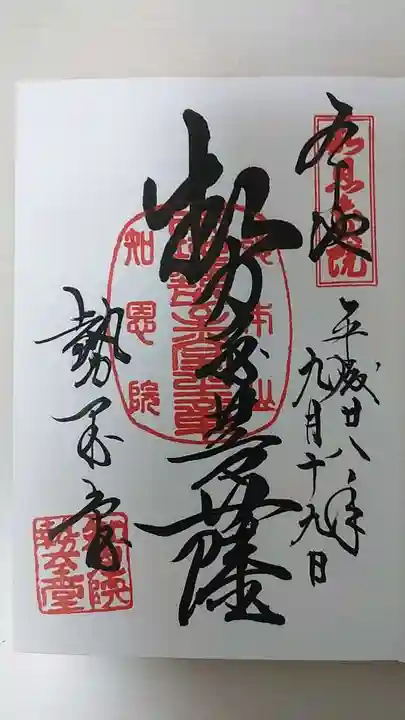 奉拝
平成廿八年
九月十九日
勢至菩薩
総本山
知恩院
勢至堂
知恩院
勢至堂